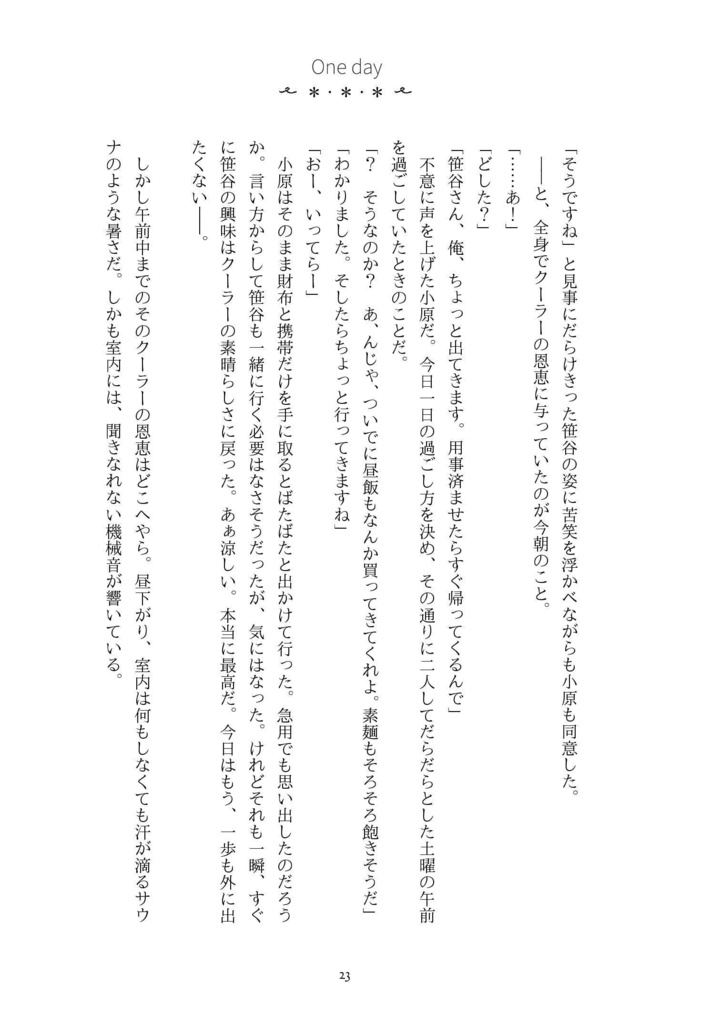 One day
「そうですね」と見事にだらけきった笹谷の姿に苦笑を浮かべながらも小原も同意した。
――と、全身でクーラーの恩恵に与っていたのが今朝のこと。
「……あ！」
「どした？」
「笹谷さん、俺、ちょっと出てきます。用事済ませたらすぐ帰ってくるんで」
不意に声を上げた小原だ。今日一日の過ごし方を決め、その通りに二人してだらだらとした土曜の午前
を過ごしていたときのことだ。
「？　そうなのか？　あ、んじゃ、ついでに昼飯もなんか買ってきてくれよ。素麺もそろそろ飽きそうだ」
「わかりました。そしたらちょっと行ってきますね」
「おー、いってらー」
小原はそのまま財布と携帯だけを手に取るとばたばたと出かけて行った。急用でも思い出したのだろう
か。言い方からして笹谷も一緒に行く必要はなさそうだったが、気にはなった。けれどそれも一瞬、すぐ
に笹谷の興味はクーラーの素晴らしさに戻った。あぁ涼しい。本当に最高だ。今日はもう、一歩も外に出
たくない――。
しかし午前中までのそのクーラーの恩恵はどこへやら。昼下がり、室内は何もしなくても汗が滴るサウ
ナのような暑さだ。しかも室内には、聞きなれない機械音が響いている。
23